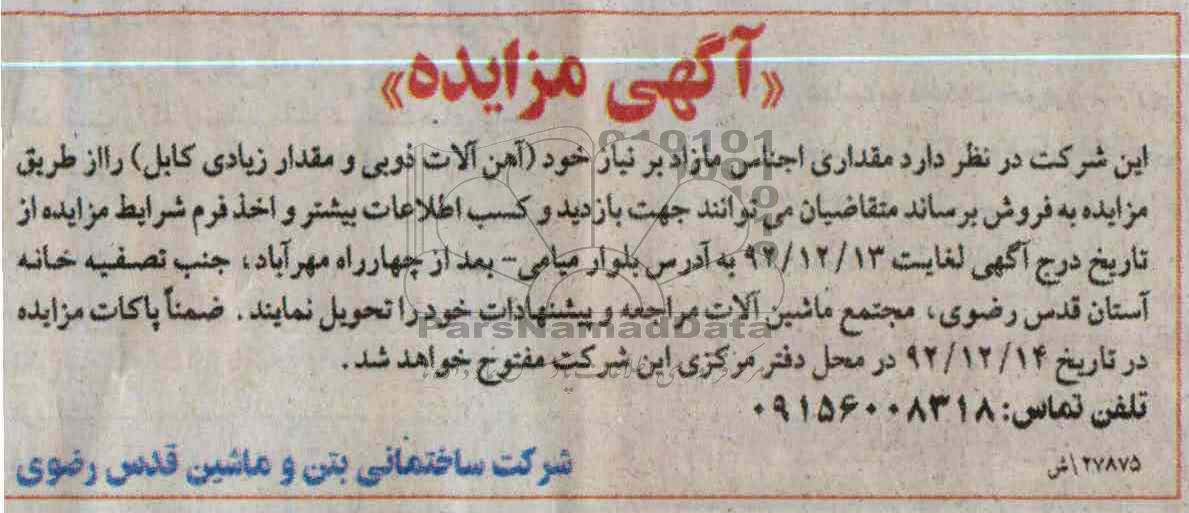 «آگهی مزایده»
این شرکت در نظر دارد مقداری اجناس مازاد بر نیاز خود (آهن آلات ذوبی و مقدار زیادی کابل) رااز طریق
مزایده به فروش برساند متقاضیان می توانند جهت بازدید و کسب اطلاعات بیشتر و اخذ فرم شرایط مزایده از
تاریخ درج آگهی لغایت ۹۲/۱۲/۱۳ به آدرس بلوار میامی- بعد از چهارراه مهرآباد، جنب تصفیه خانه
آستان قدس رضوی، مجتمع ماشین آلات مراجعه و پیشنهادات خود را تحویل نمایند. ضمناً پاکات مزایده
در تاریخ ۹۲/۱۲/۱۴ در محل دفتر مرکزی این شرکت مفتوح خواهد شد.
تلفن تماس: ۰۹۱۵۶۰۰۸۳۱۸
۲۷۸۷۵\اش
شرکت ساختمانی بتن و ماشین قدس رضوی
ParsNamadData